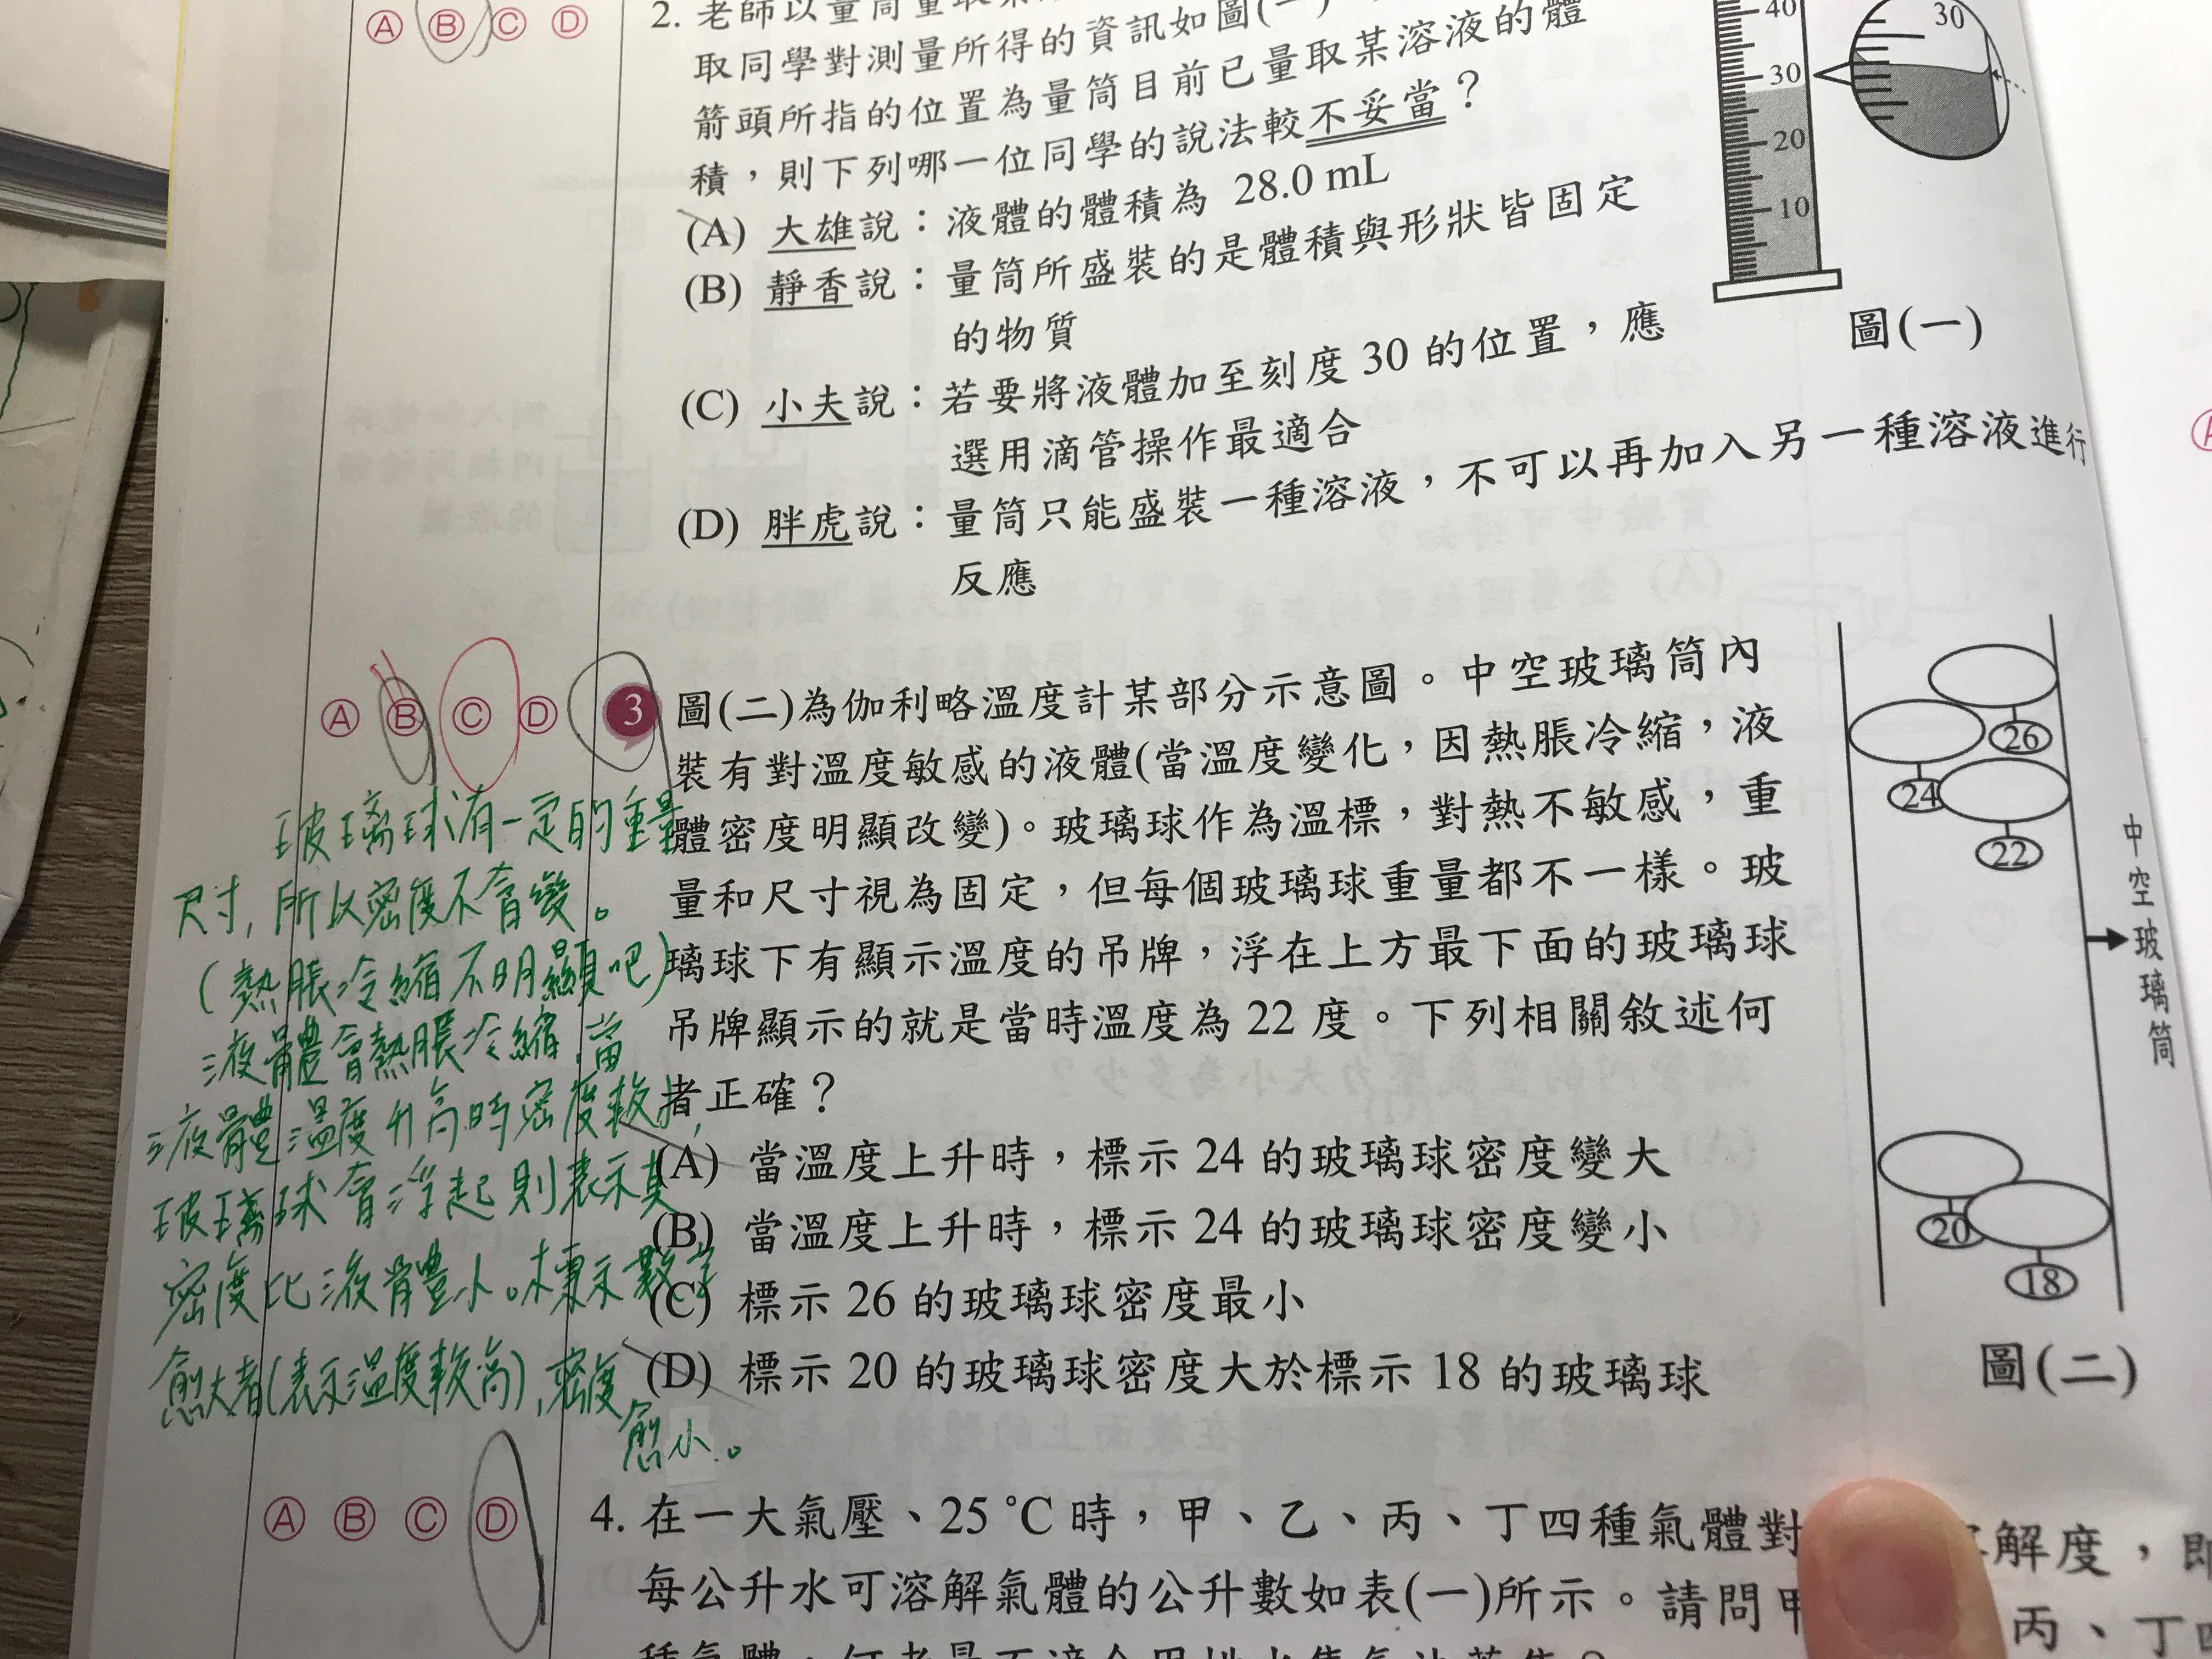 Ⓐ Ⓑ Ⓒ Ⓓ
2. 老師以量筒量取某
取同學對測量所得的資訊如圖(一)
箭頭所指的位置為量筒目前已量取某溶液的體
積，則下列哪一位同學的說法較不妥當？
(A) 大雄說：液體的體積為 28.0 mL
(B) 靜香說：量筒所盛裝的是體積與形狀皆固定
的物質
(C) 小夫說：若要將液體加至刻度 30 的位置，應
選用滴管操作最適合
(D) 胖虎說：量筒只能盛裝一種溶液，不可以再加入另一種溶液進行
反應
40
30
20
10
30
圖(一)
Ⓐ Ⓑ Ⓒ Ⓓ
3 圖(二)為伽利略溫度計某部分示意圖。中空玻璃筒內
裝有對溫度敏感的液體(當溫度變化，因熱脹冷縮，液
體密度明顯改變)。玻璃球作為溫標，對熱不敏感，重
量和尺寸視為固定，但每個玻璃球重量都不一樣。玻
璃球下有顯示溫度的吊牌，浮在上方最下面的玻璃球
吊牌顯示的就是當時溫度為 22 度。下列相關敘述何
者正確？
(A) 當溫度上升時，標示 24 的玻璃球密度變大
(B) 當溫度上升時，標示 24 的玻璃球密度變小
(C) 標示 26 的玻璃球密度最小
(D) 標示 20 的玻璃球密度大於標示 18 的玻璃球
26
24
22
20
18
中空玻璃筒
圖(二)
玻璃球有一定的重量
尺寸,所以密度不會變。
(熱脹冷縮不明顯吧)
液體會熱脹冷縮,當
液體溫度升高時密度較
玻璃球會浮起則表示其
密度比液體小。標示數字
愈大者(表示溫度較高),密度
愈小。
Ⓐ Ⓑ Ⓒ Ⓓ
4. 在一大氣壓、25 ℃ 時，甲、乙、丙、丁四種氣體對
解度，即
每公升水可溶解氣體的公升數如表(一)所示。請問甲
丙、丁四
種氣體，何者最不適合用排水集氣法蒐集？